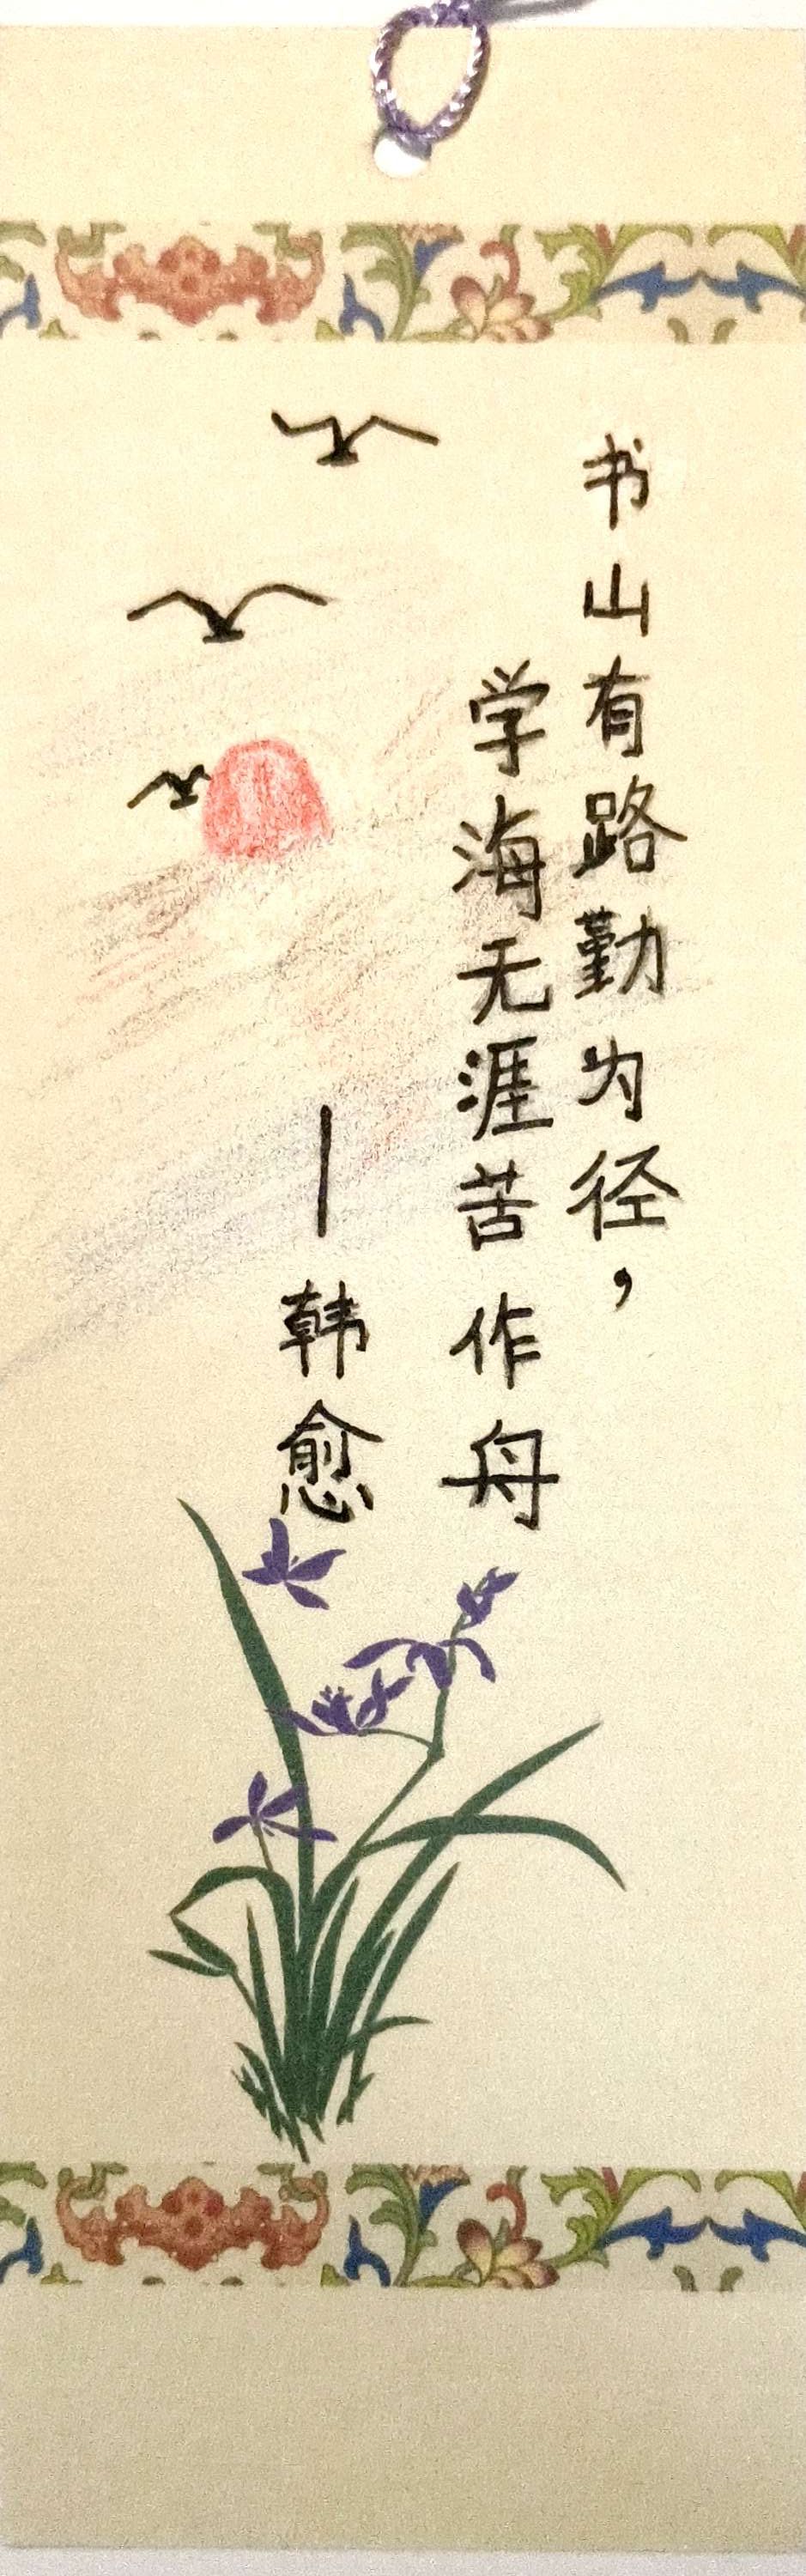 书山有路勤为径，
学海无涯苦作舟
—韩愈